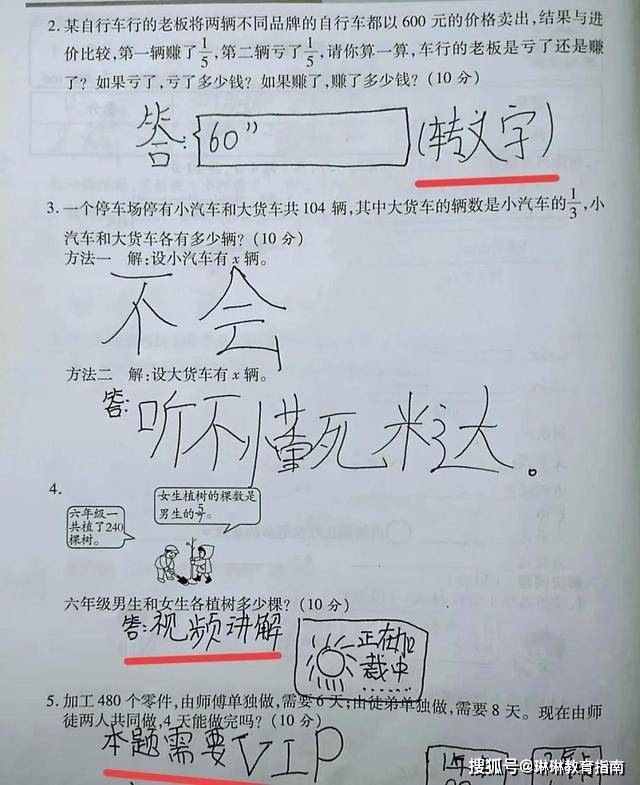 2. 某自行车行的老板将两辆不同品牌的自行车都以 600 元的价格卖出,结果与进
价比较,第一辆赚了1/5,第二辆亏了1/5,请你算一算,车行的老板是亏了还是赚
了? 如果亏了,亏了多少钱? 如果赚了,赚了多少钱? (10 分)
答: 60” (转文字)
3. 一个停车场停有小汽车和大货车共 104 辆,其中大货车的辆数是小汽车的1/3,小
汽车和大货车各有多少辆? (10 分)
方法一 解:设小汽车有 x 辆。
不会
方法二 解:设大货车有 x 辆。
答: 听不懂死米达。
4.
女生植树的棵数是
男生的5/7。
六年级一
共植了240
棵树。
六年级男生和女生各植树多少棵? (10 分)
答: 视频讲解
正在加
裁中
5. 加工 480 个零件,由师傅单独做,需要 6 天;由徒弟单独做,需要 8 天。现在由师
徒两人共同做,4 天能做完吗? (10 分)
本题需要VIP
搜狐号@琳琳教育指南